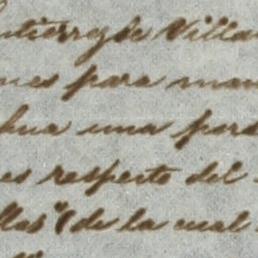 Gutierrez de Villa
nes para man
hua una pors
es respecto del
llas" (de la cual